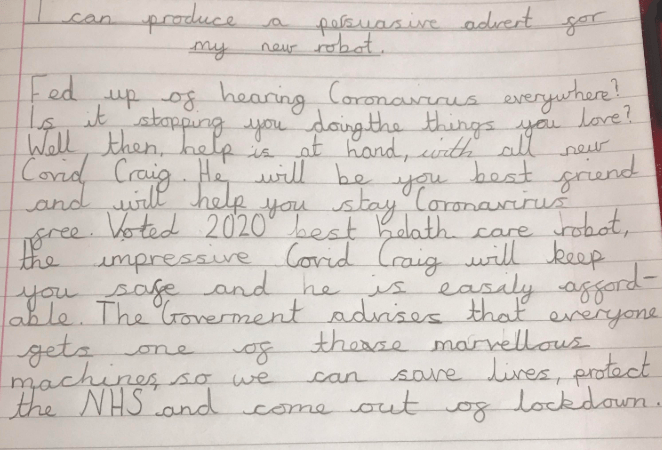 I can produce a persuasive advert for
my new robot.
Fed up of hearing Coronavirus everywhere?
Is it stopping you doing the things you love?
Well then, help is at hand, with all new
Covid Craig. He will be you best friend
and will help you stay Coronavirus
free. Voted 2020 best helath care robot,
the impressive Covid Craig will keep
you safe and he is easaly afford-
able. The Goverment advises that everyone
gets one of thease marvellous
machines, so we can save lives, protect
the NHS and come out of lockdown.